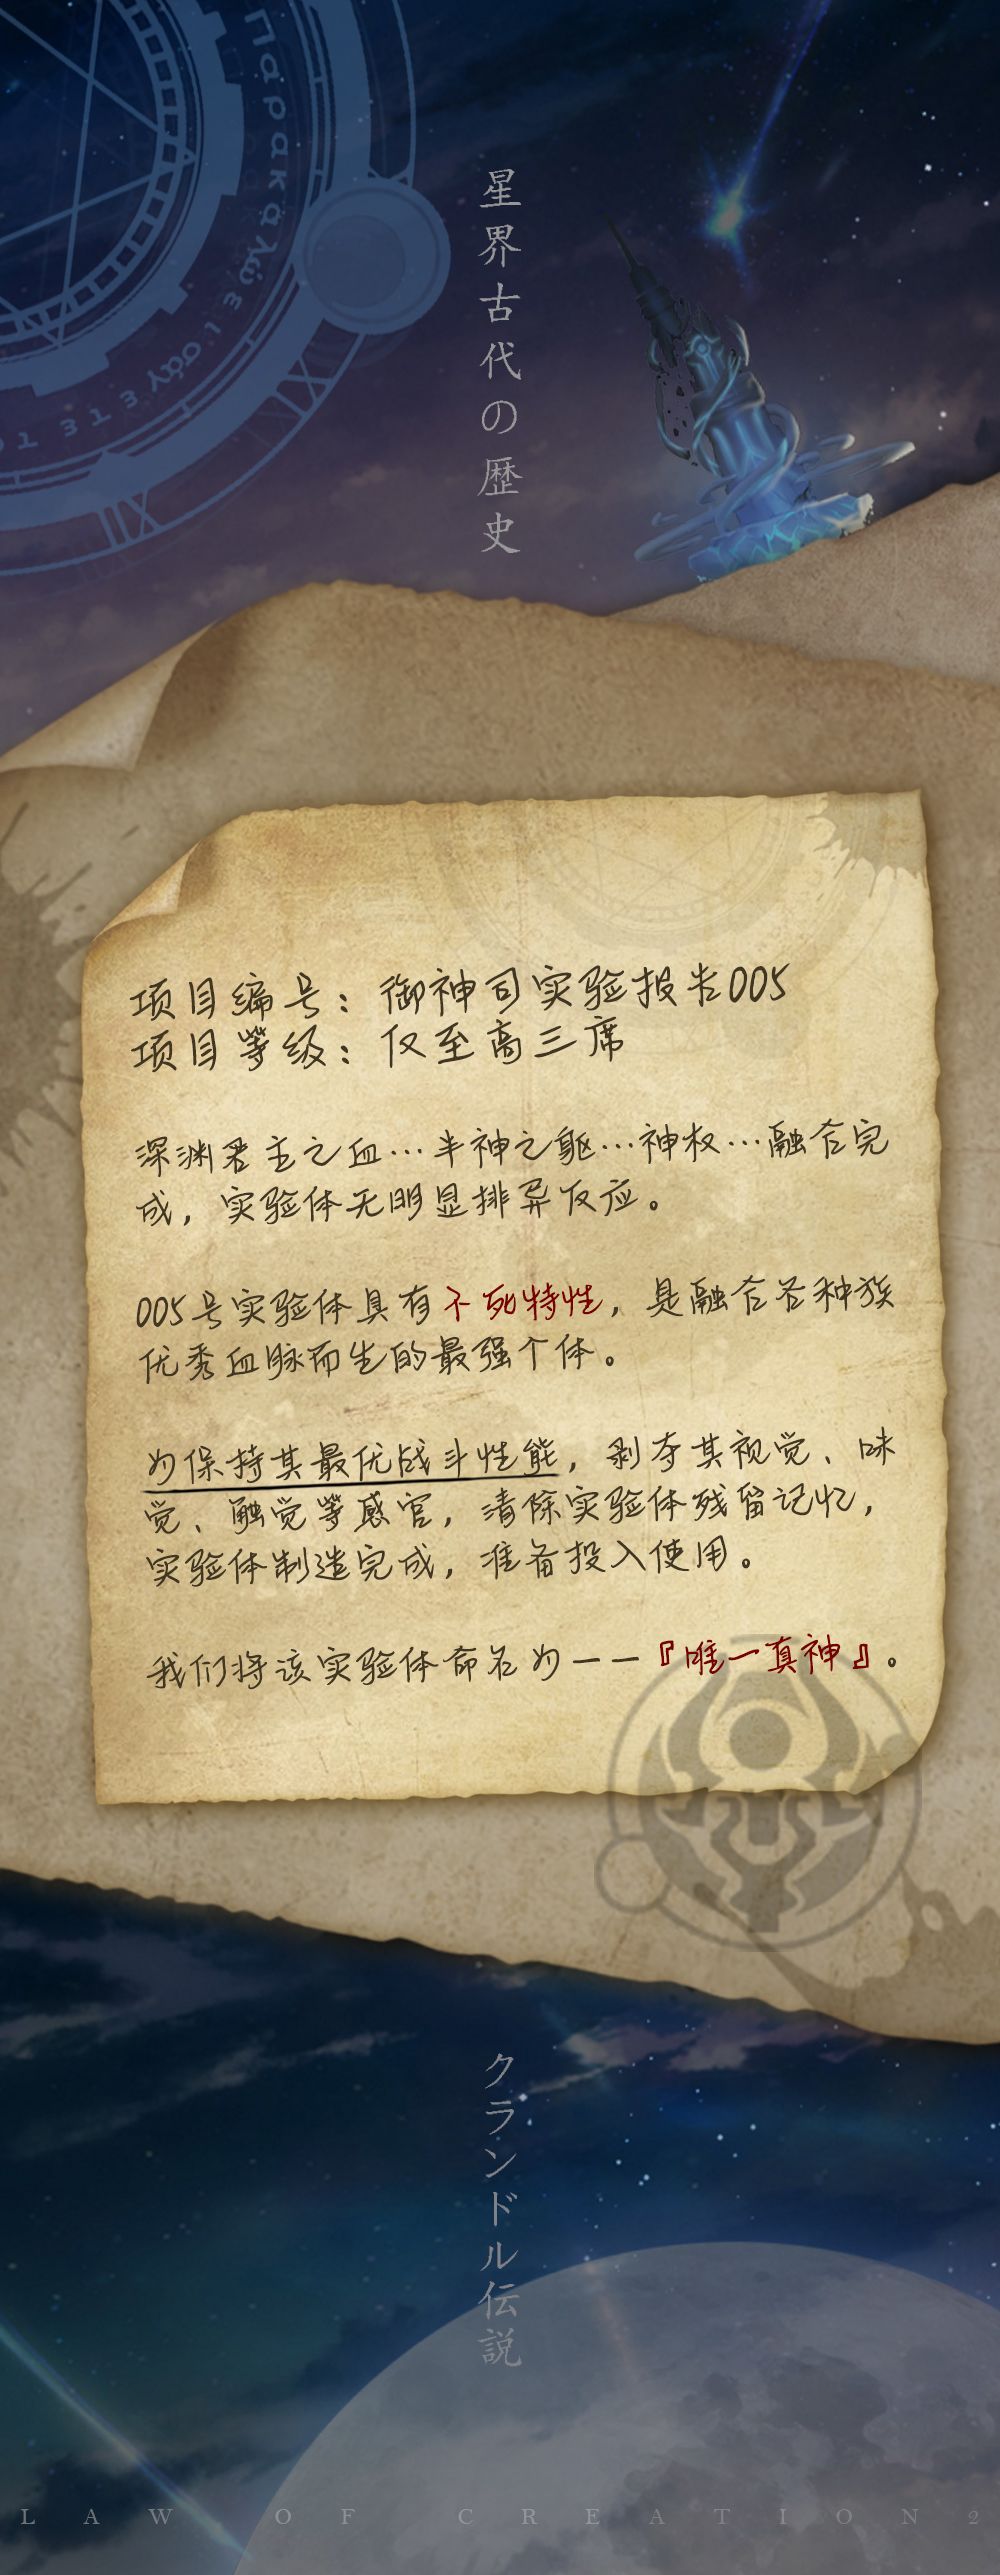 Παρακαλώ εισάγετε το
星界古代の歴史
项目编号：御神司实验报告005
项目等级：仅至高三席
深渊君主之血…半神之躯…神权…融合完
成，实验体无明显排异反应。
005号实验体具有不死特性，是融合各种族
优秀血脉而生的最强个体。
为保持其最优战斗性能，剥夺其视觉、味
觉、触觉等感官，清除实验体残留记忆，
实验体制造完成，准备投入使用。
我们将该实验体命名为——『唯一真神』。
クランドル伝説
LAW OF CREATION2